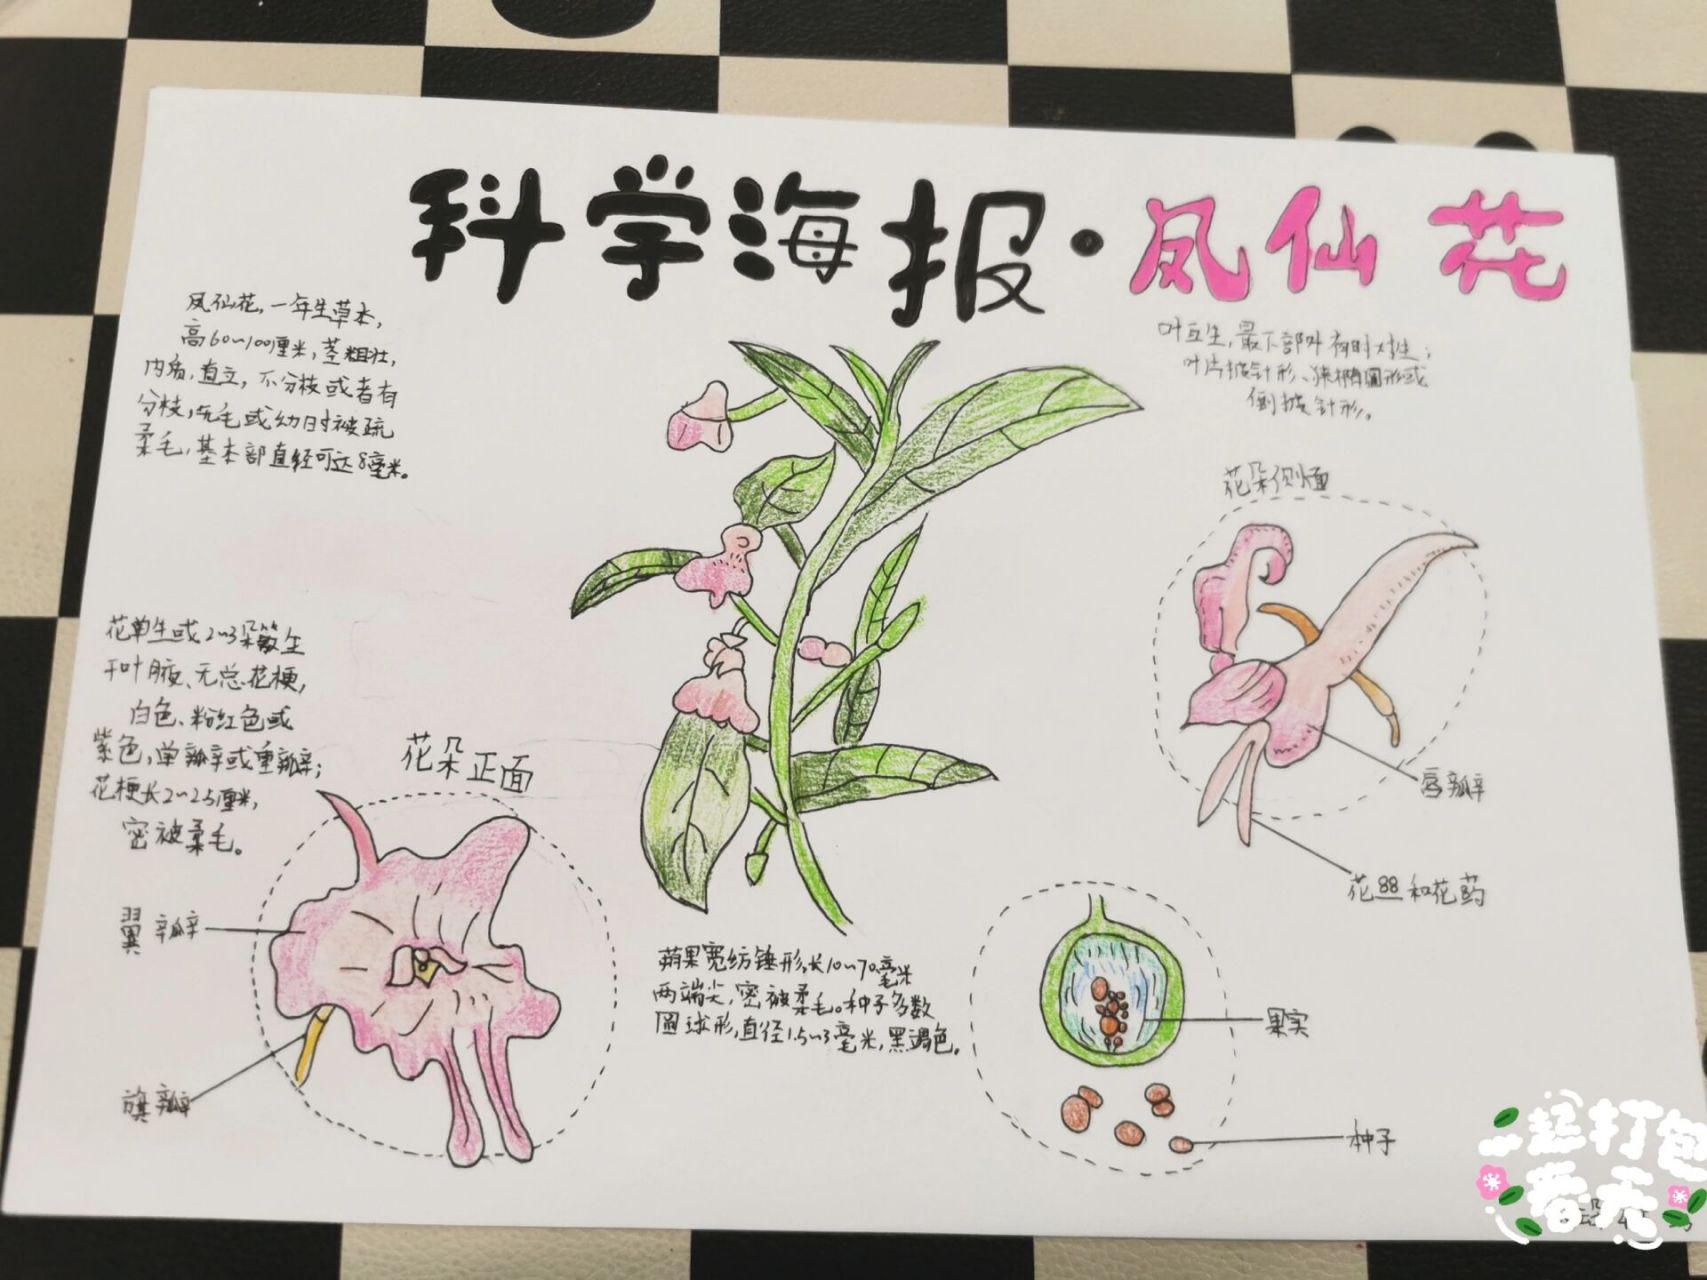 科学海报·凤仙花
凤仙花,一年生草本,
高60~100厘米,茎粗壮,
肉质,直立,不分枝或者有
分枝,无毛或幼时被疏
柔毛,基本部直经可达8毫米。
叶互生,最下部叶有时对生;
叶片披针形、狭椭圆形或
倒披针形。
花朵侧面
花单生或2~3朵簇生
于叶腋、无总花梗,
白色、粉红色或
紫色,单瓣或重瓣;
花梗长2~2.5厘米,
密被柔毛。
花朵正面
唇瓣
花丝和花药
翼瓣
旗瓣
蒴果宽纺锤形,长10~70毫米
两端尖,密被柔毛。种子多数
圆球形,直径1.5~3毫米,黑褐色。
果实
种子
一起打包
春天